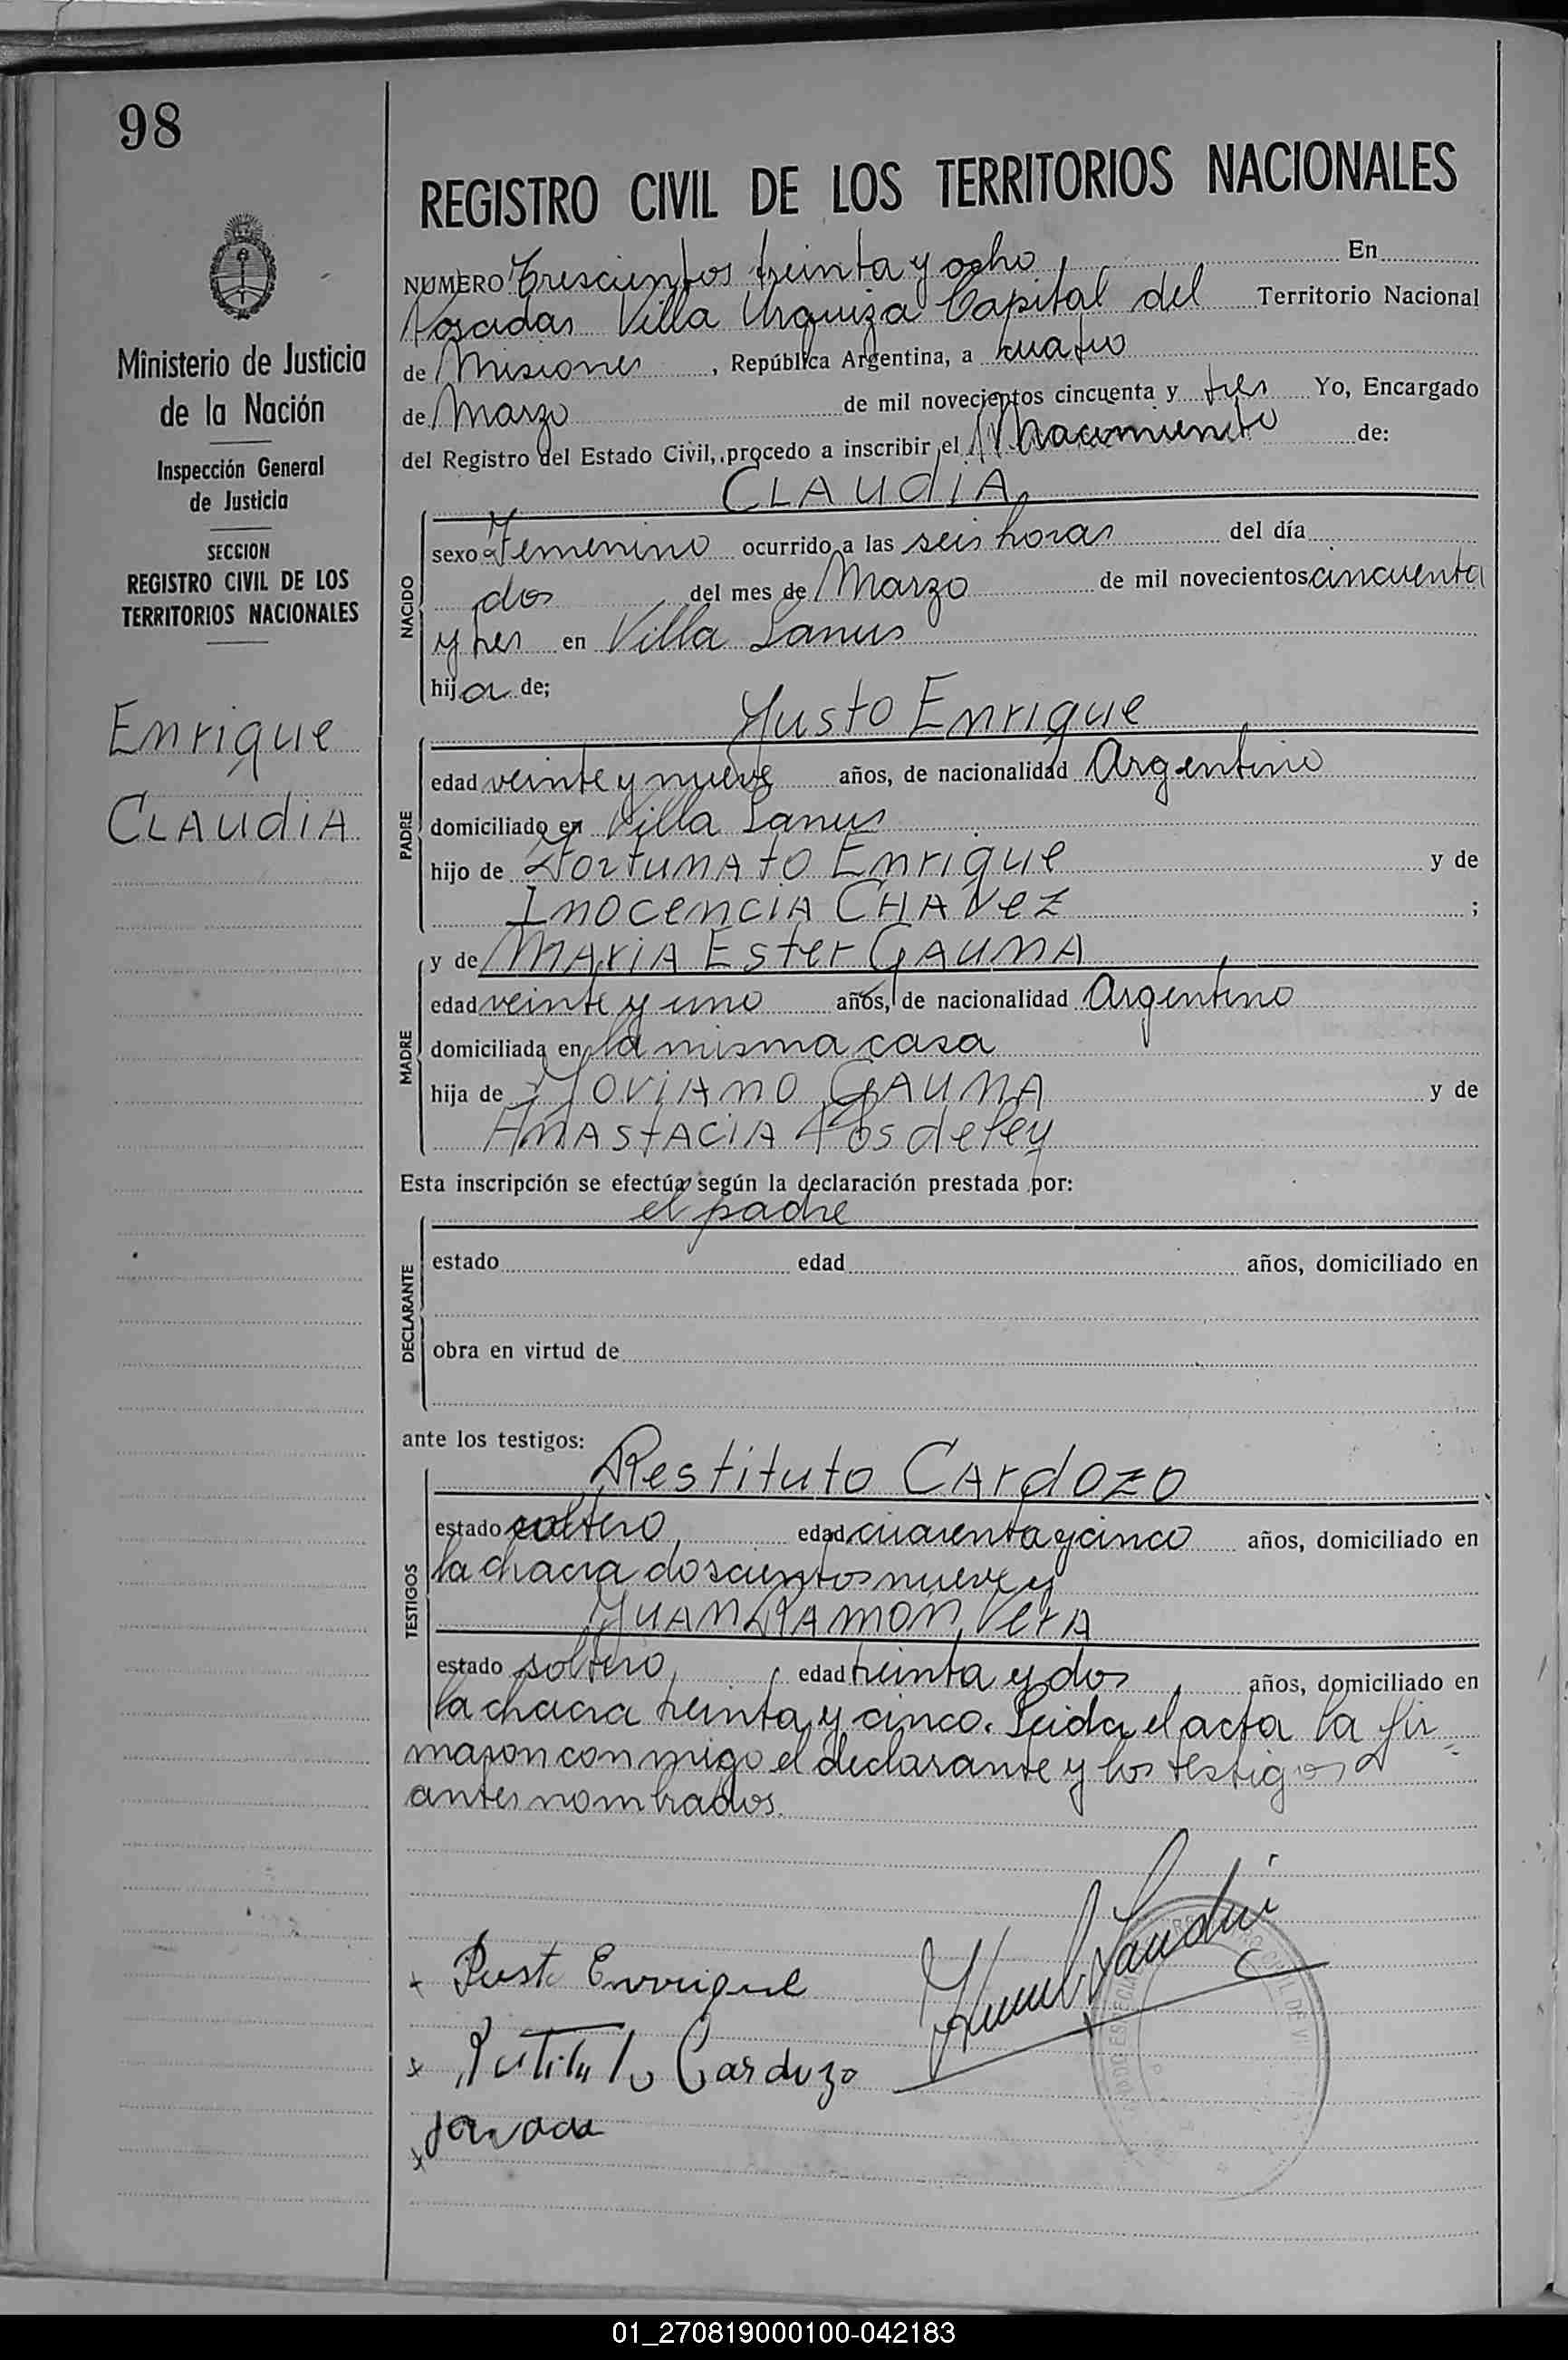 98
REGISTRO CIVIL DE LOS TERRITORIOS NACIONALES
Ministerio de Justicia
de la Nación
Inspección General
de Justicia
SECCION
REGISTRO CIVIL DE LOS
TERRITORIOS NACIONALES
Enrique
CLAUdiA
NUMERO Trescientos treinta y ocho En
Posadas Villa Urquiza Capital del Territorio Nacional
de Misiones , República Argentina, a cuatro
de Marzo de mil novecientos cincuenta y tres Yo, Encargado
del Registro del Estado Civil, procedo a inscribir el Nacimiento de:
CLAUdiA
NACIDO
sexo Femenino ocurrido a las seis horas del día
dos del mes de Marzo de mil novecientos cincuenta
y tres en Villa Lanus
hija de;
Justo Enrique
PADRE
edad veinte y nueve años, de nacionalidad Argentino
domiciliado en Villa Lanus
hijo de FortunAto Enrique y de
InocenciA CHAVez ;
y de MAriA Ester GAUNA
MADRE
edad veinte y uno años, de nacionalidad Argentino
domiciliada en la misma casa
hija de JOViANO GAUNA y de
ANAStACiA Posdeley
Esta inscripción se efectúa según la declaración prestada por:
el padre
DECLARANTE
estado edad años, domiciliado en
obra en virtud de
ante los testigos:
Restituto CArdozo
TESTIGOS
estado soltero, edad cuarenta y cinco años, domiciliado en
la chacra doscientos nueve y
JUAN RAMON VerA
estado soltero, edad treinta y dos años, domiciliado en
la chacra treinta y cinco. Leida el acta la fir
maron conmigo el declarante y los testigos
antes nombrados.
Justo Enrrique
Restituto Cardozo